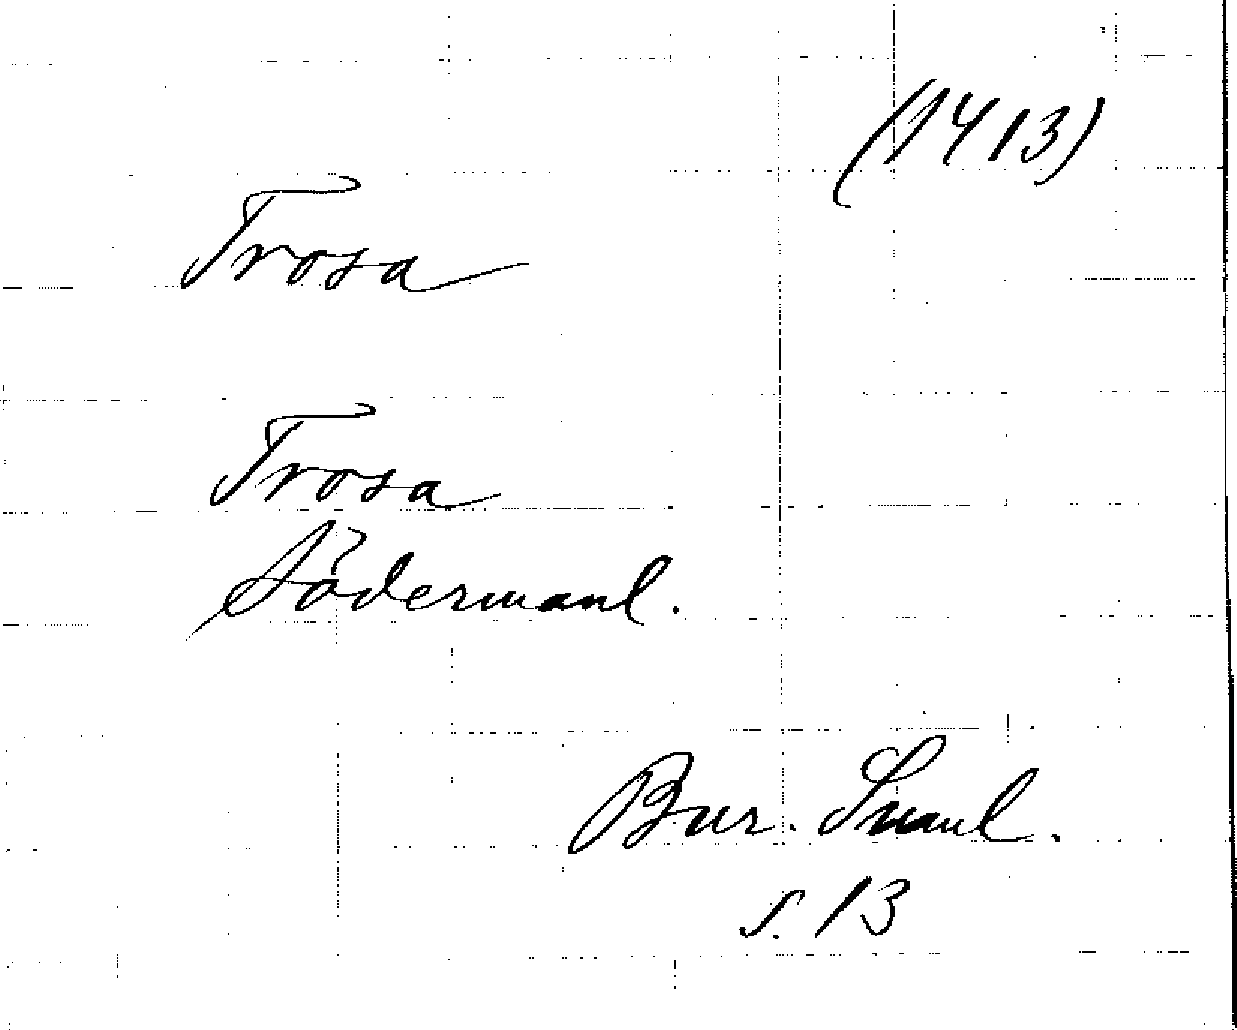 (1413)
Trosa
Trosa
Södermanl.
Bur. Smål.
s. 13